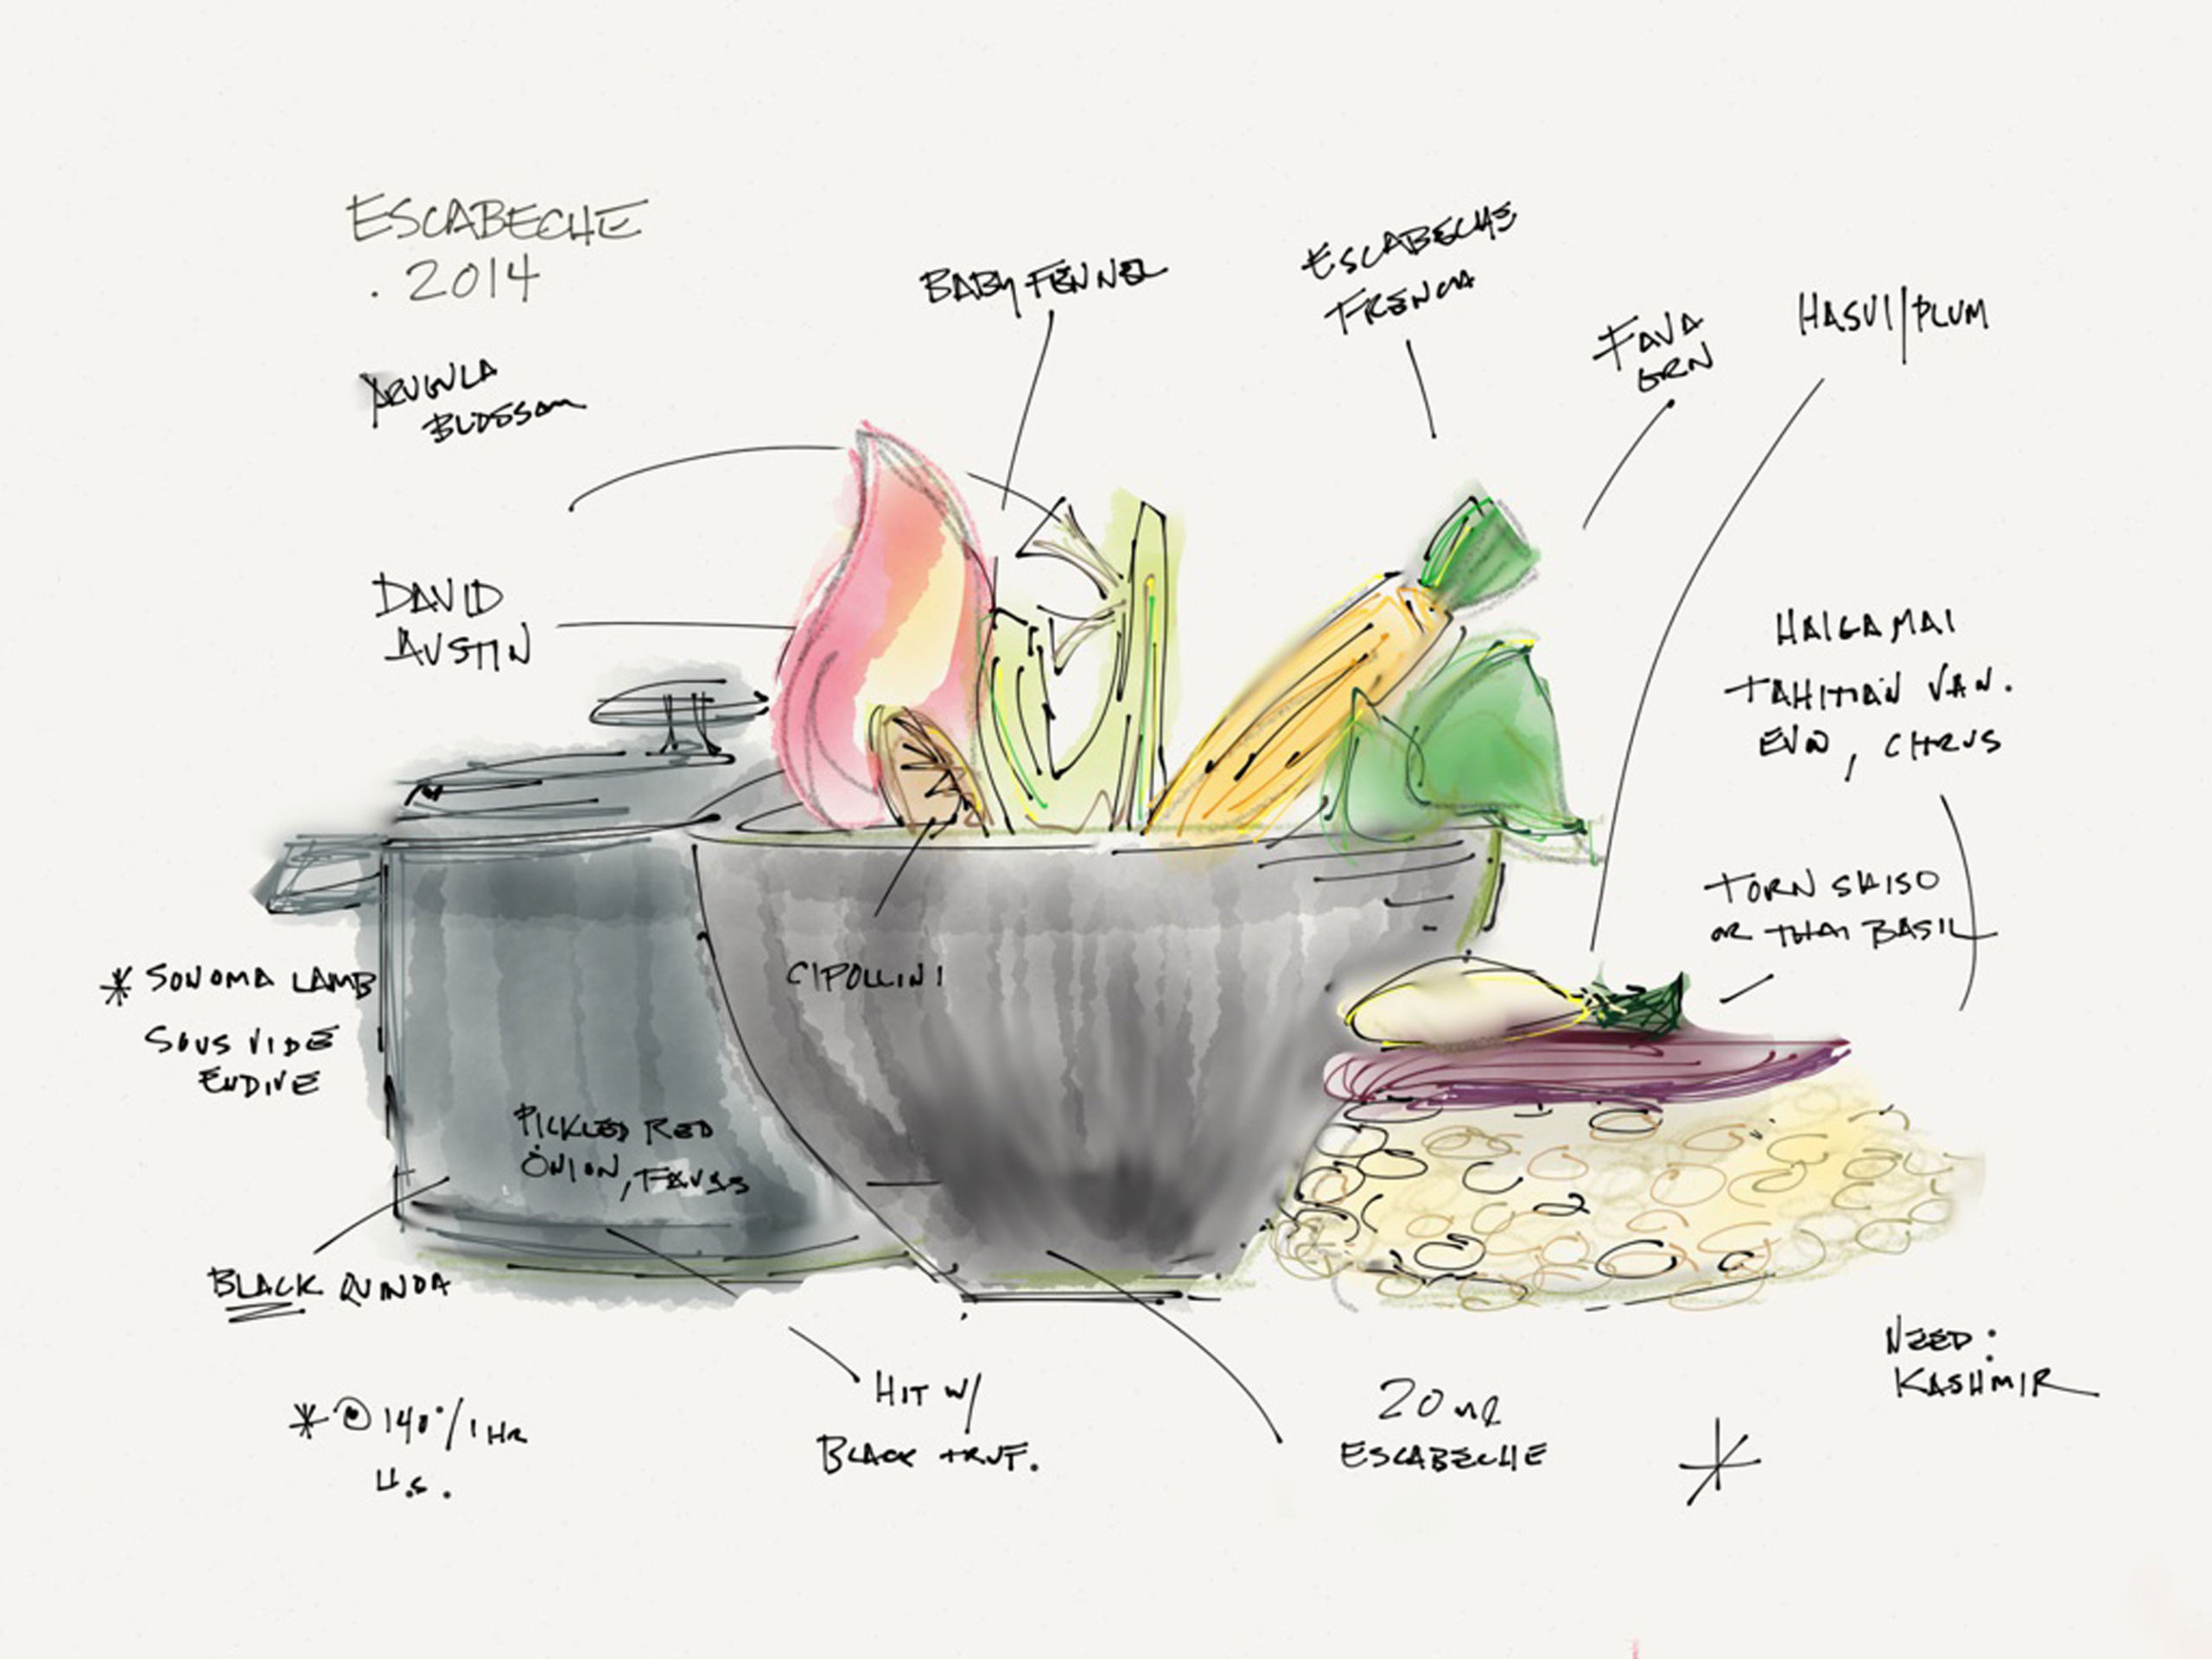 ESCABECHE
. 2014
ARUGULA
BLOSSOM
BABY FENNEL
ESCABECHE
FAVA
GRN
HASUI/PLUM
DAVID
AUSTIN
HAIGA MAI
TAHITIAN VAN.
EVOO, CITRUS
TORN SHISO
OR THAI BASIL
CIPOLLINI
* SONOMA LAMB
SOUS VIDE
ENDIVE
PICKLED RED
ONION, FAVAS
BLACK QUINOA
HIT W/
BLACK TRUF.
20 ml
ESCABECHE
NEED:
KASHMIR
* @ 140°/1 HR
*